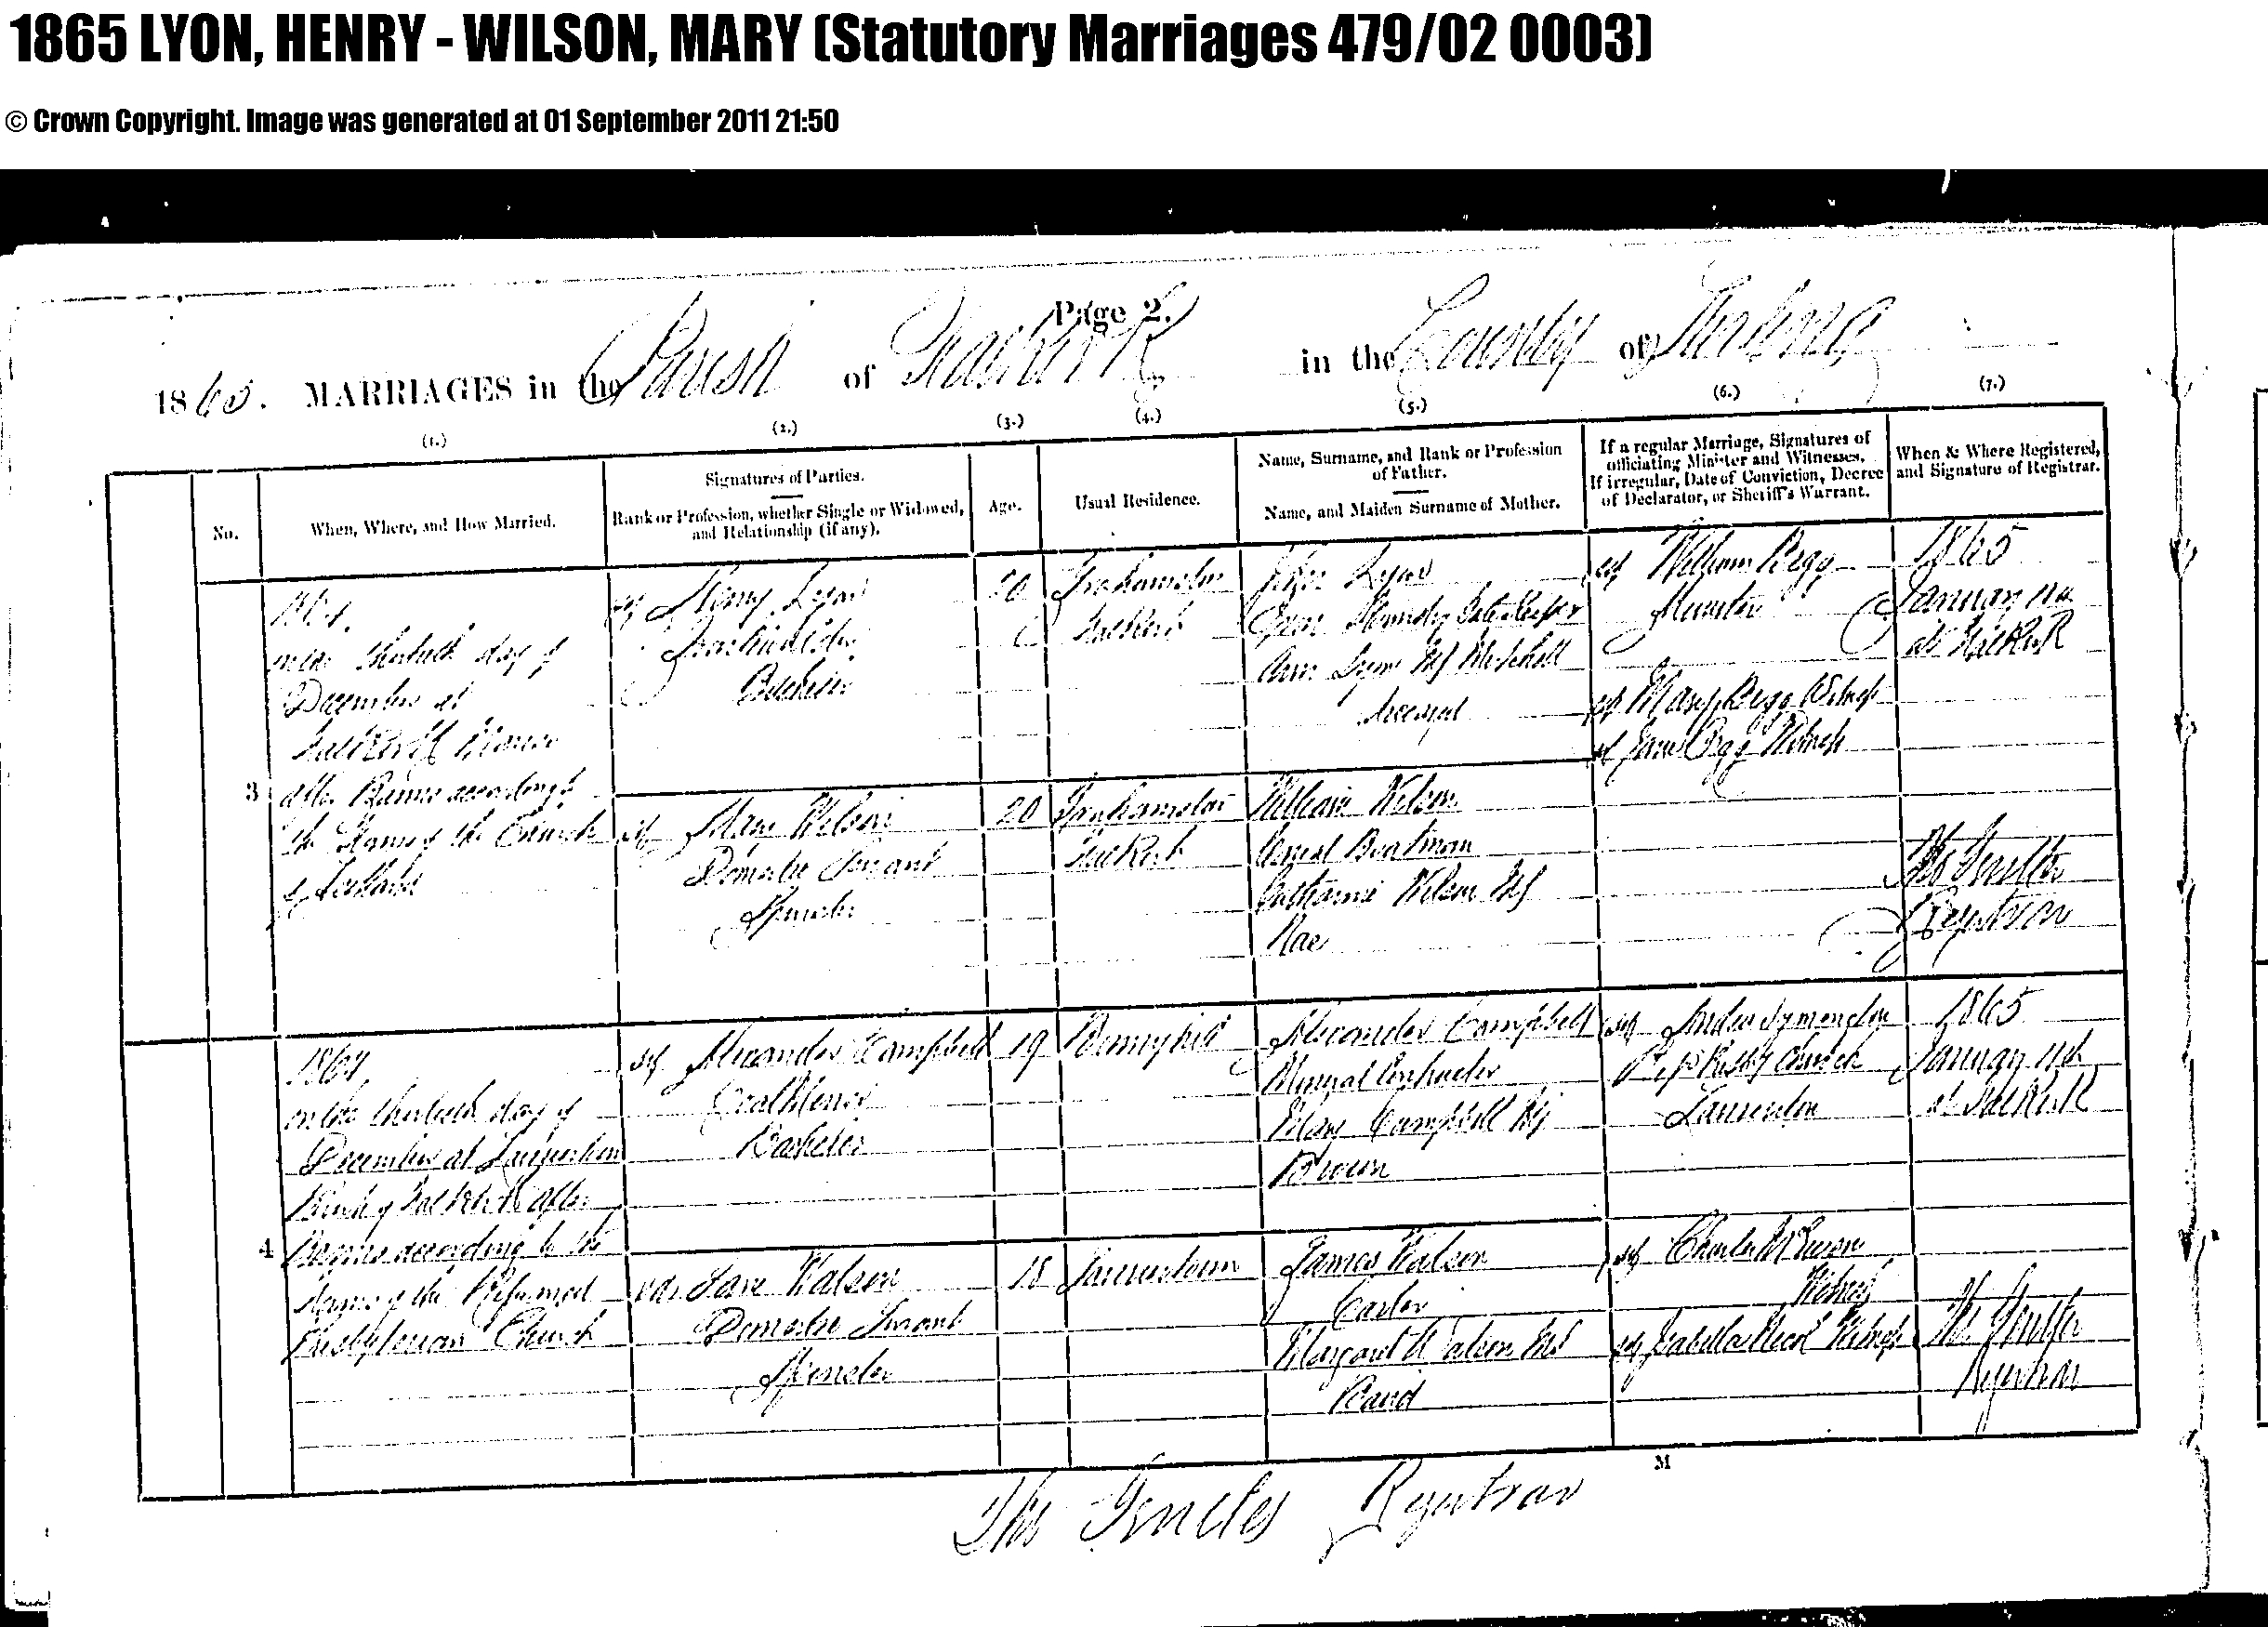 1865 LYON, HENRY - WILSON, MARY (Statutory Marriages 479/02 0003)
© Crown Copyright. Image was generated at 01 September 2011 21:50
Page 2.
1865. MARRIAGES in the Parish of Falkirk in the County of Stirling
(1.) (2.) (3.) (4.) (5.) (6.) (7.)
No.
When, Where, and How Married.
Signatures of Parties.
Rank or Profession, whether Single or Widowed,
and Relationship (if any).
Age.
Usual Residence.
Name, Surname, and Rank or Profession
of Father.
Name, and Maiden Surname of Mother.
If a regular Marriage, Signatures of
officiating Minister and Witnesses.
If irregular, Date of Conviction, Decree
of Declarator, or Sheriff's Warrant.
When & Where Registered,
and Signature of Registrar.
3
1864.
on the thirtieth day of
December at
Falkirk Manse
after Banns according to
the Forms of the Church
of Scotland
Henry Lyon
Bachelor
20
Grahamston
Falkirk
Lyon
Iron Foundry Gate Keeper
Ann Lyon MS Mitchell
deceased
William Begg
Minister
Mary Begg Witness
Jane Begg Witness
1865
January 11th
at Falkirk
Mary Wilson
Domestic Servant
Spinster
20
Grahamston
Falkirk
William Wilson
Canal Boatman
Catharine Wilson MS
Rae
Registrar
4
1864
on the thirtieth day of
December at Laurieston
Parish of Falkirk after
Banns according to the
Forms of the Reformed
Presbyterian Church
Alexander Campbell
Coal Miner
Bachelor
19
Bennyhill
Alexander Campbell
Mineral Contractor
Mary Campbell MS
Brown
Andrew Symington
Church
Laurieston
1865
January 11th
at Falkirk
Jane Watson
Domestic Servant
Spinster
18
Laurieston
James Watson
Carter
Margaret Watson MS
Rand
Charles
Witness
Isabella Witness
Registrar
M
Registrar